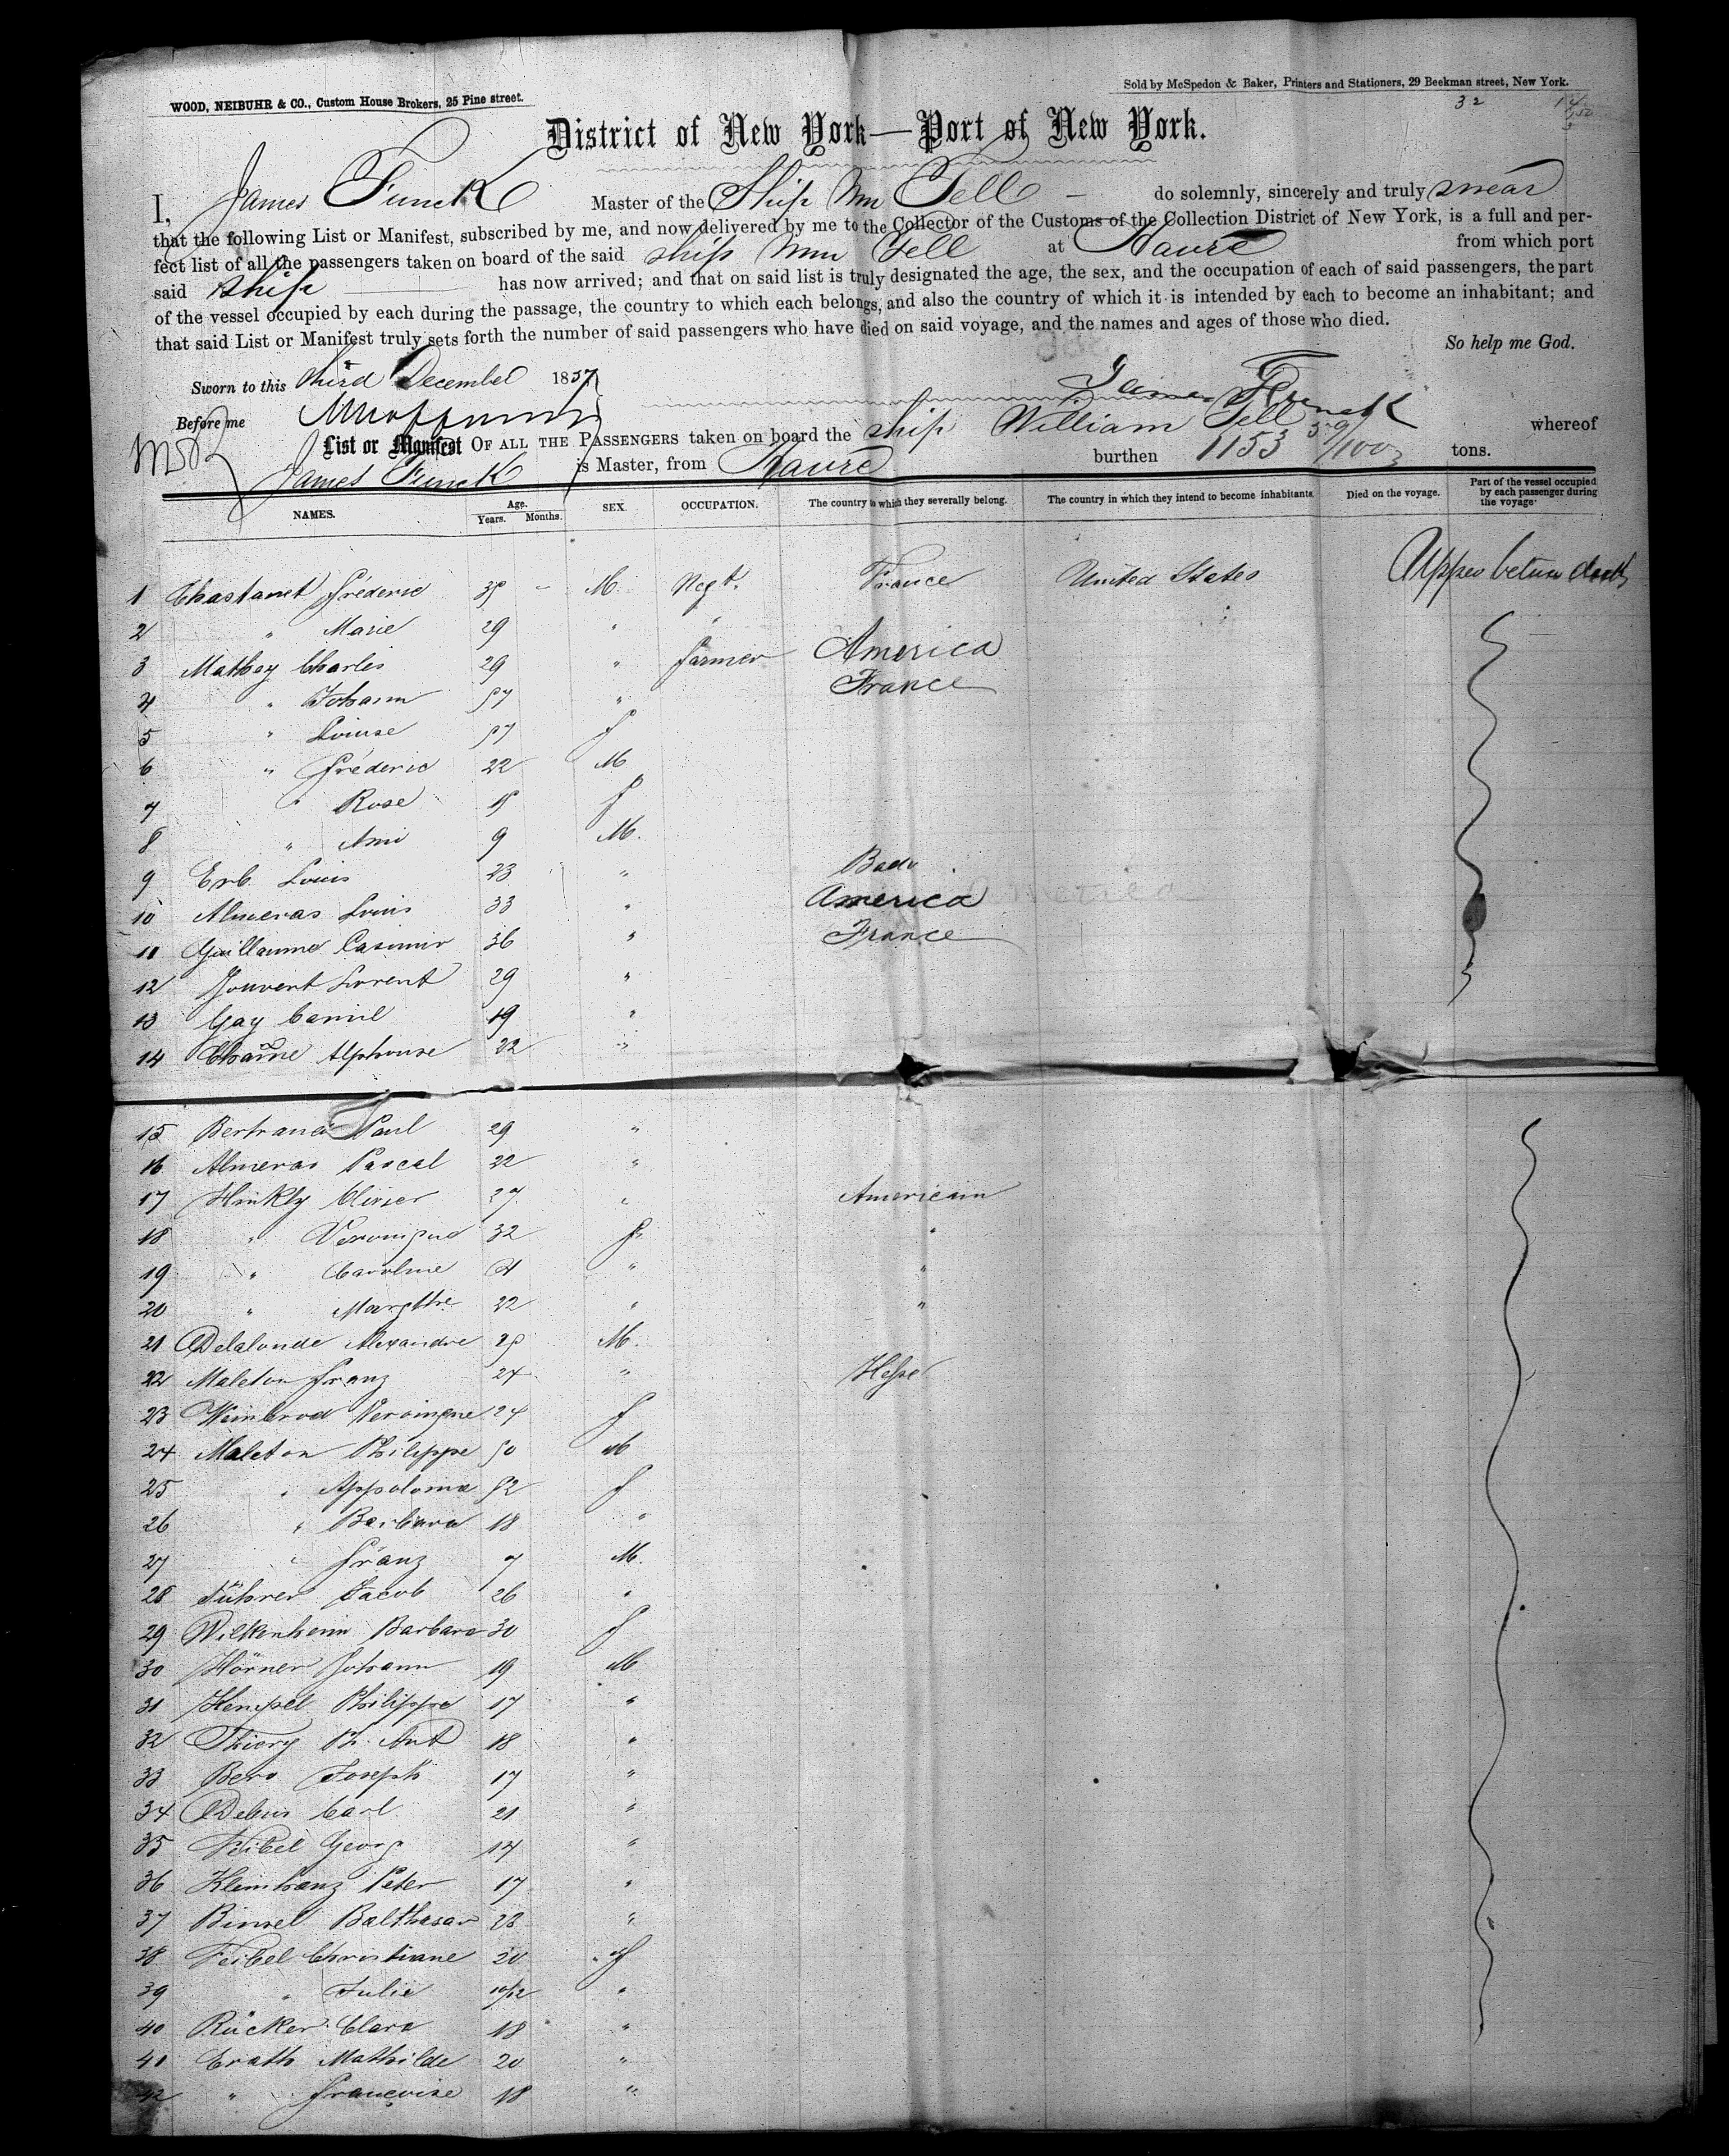 WOOD, NEIBUHR & CO., Custom House Brokers, 25 Pine street.
Sold by McSpedon & Baker, Printers and Stationers, 29 Beekman street, New York.
32
District of New York—Port of New York.
I, James Funck Master of the Ship Wm Tell do solemnly, sincerely and truly swear
that the following List or Manifest, subscribed by me, and now delivered by me to the Collector of the Customs of the Collection District of New York, is a full and per-
fect list of all the passengers taken on board of the said ship Wm Tell at Havre from which port
said ship has now arrived; and that on said list is truly designated the age, the sex, and the occupation of each of said passengers, the part
of the vessel occupied by each during the passage, the country to which each belongs, and also the country of which it is intended by each to become an inhabitant; and
that said List or Manifest truly sets forth the number of said passengers who have died on said voyage, and the names and ages of those who died.
So help me God.
Sworn to this third December 1857
James Funck
Before me
List or Manifest OF ALL THE PASSENGERS taken on board the ship William Tell whereof
James Funck is Master, from Havre burthen 1153 59/100 tons.
NAMES. Age. Years. Months. SEX. OCCUPATION. The country to which they severally belong. The country in which they intend to become inhabitants. Died on the voyage. Part of the vessel occupied by each passenger during the voyage.
1 Chastanet Fréderic 35 - M. Negt. France United States Upper betwn deck
2 " Marie 29 " "
3 Mathey Charles 29 " farmer America
4 " Johann 57 " France
5 " Louise 57 f
6 " Fréderic 22 M
7 " Rose 15 f
8 " Ami 9 M.
9 Erb Louis 23 " Bade
10 Almeras Louis 33 " America
11 Guillaume Casimir 36 " France
12 Jouvert Lorent 29 "
13 Gay Camil 19 "
14 Alphonse 22 "
15 Bertrand Paul 29 "
16 Almeras Pascal 22 "
17 Hinkly 27 " Americain
18 " Veronique 32 f. "
19 " Caroline " "
20 " Margthe 22 " "
21 Delalande Alexandre 25 M.
22 Maleton Franz 24 " Hesse
23 Weinbrod Veronique 24 f
24 Maleton Philippe 50 M
25 " Appolonia 52 f
26 " Barbara 18 "
27 " Franz 7 M.
28 Führer Jacob 26 "
29 Barbara 30 f
30 Hörner Johann 19 M
31 Hempel Philippe 17 "
32 Thiery Ph. Ant 18 "
33 Joseph 17 "
34 Debus Carl 21 "
35 Feibel Georg 17 "
36 Kleinhanz Peter 17 "
37 Binsel Balthasar 28 "
38 Feibel Christiane 20 f
39 " Julie 10/12 "
40 Rücker Clara 18 "
41 Erath Mathilde 20 "
42 " Françoise 18 "